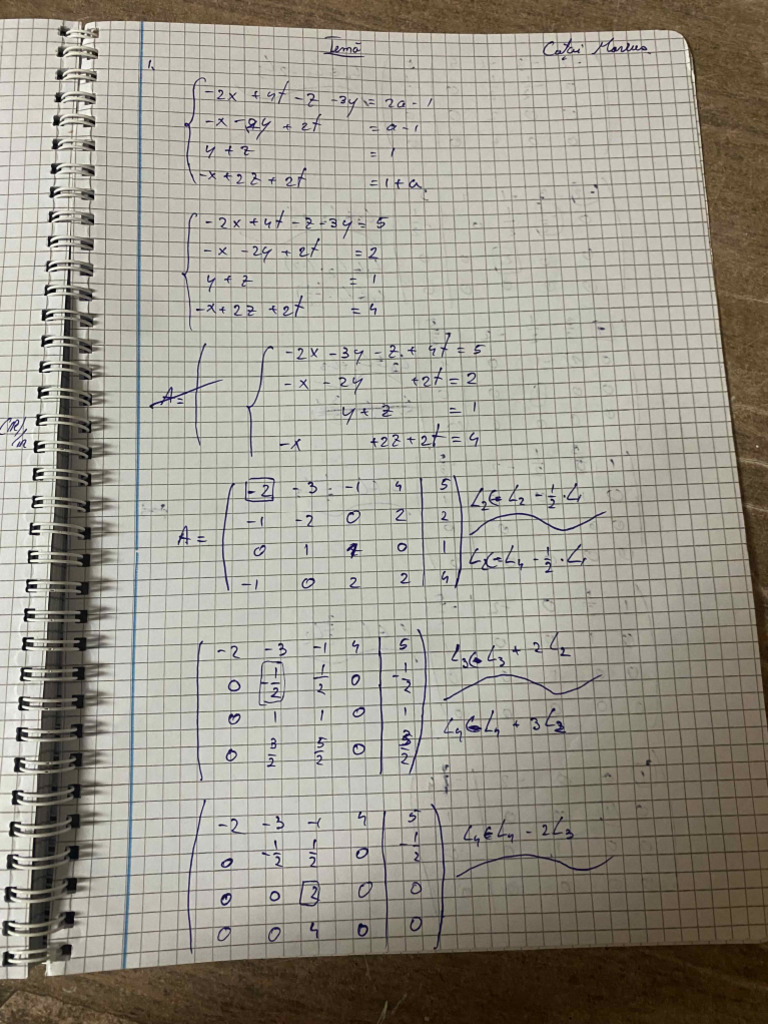 Temă
Cațai Marius
1.
-2x + 4t - z - 3y = 2a - 1
-x - 2y + 2t = a - 1
y + z = 1
-x + 2z + 2t = 1 + a
-2x + 4t - z - 3y = 5
-x - 2y + 2t = 2
y + z = 1
-x + 2z + 2t = 4
A =
-2x - 3y - z + 4t = 5
-x - 2y + 2t = 2
y + z = 1
-x + 2z + 2t = 4
A =
-2 -3 -1 4 | 5
-1 -2 0 2 | 2
0 1 1 0 | 1
-1 0 2 2 | 4
L2 ← L2 - 1/2 · L1
L4 ← L4 - 1/2 · L1
-2 -3 -1 4 | 5
0 -1/2 1/2 0 | -1/2
0 1 1 0 | 1
0 3/2 5/2 0 | 3/2
L3 ← L3 + 2L2
L4 ← L4 + 3L2
-2 -3 -1 4 | 5
0 -1/2 1/2 0 | -1/2
0 0 2 0 | 0
0 0 4 0 | 0
L4 ← L4 - 2L3